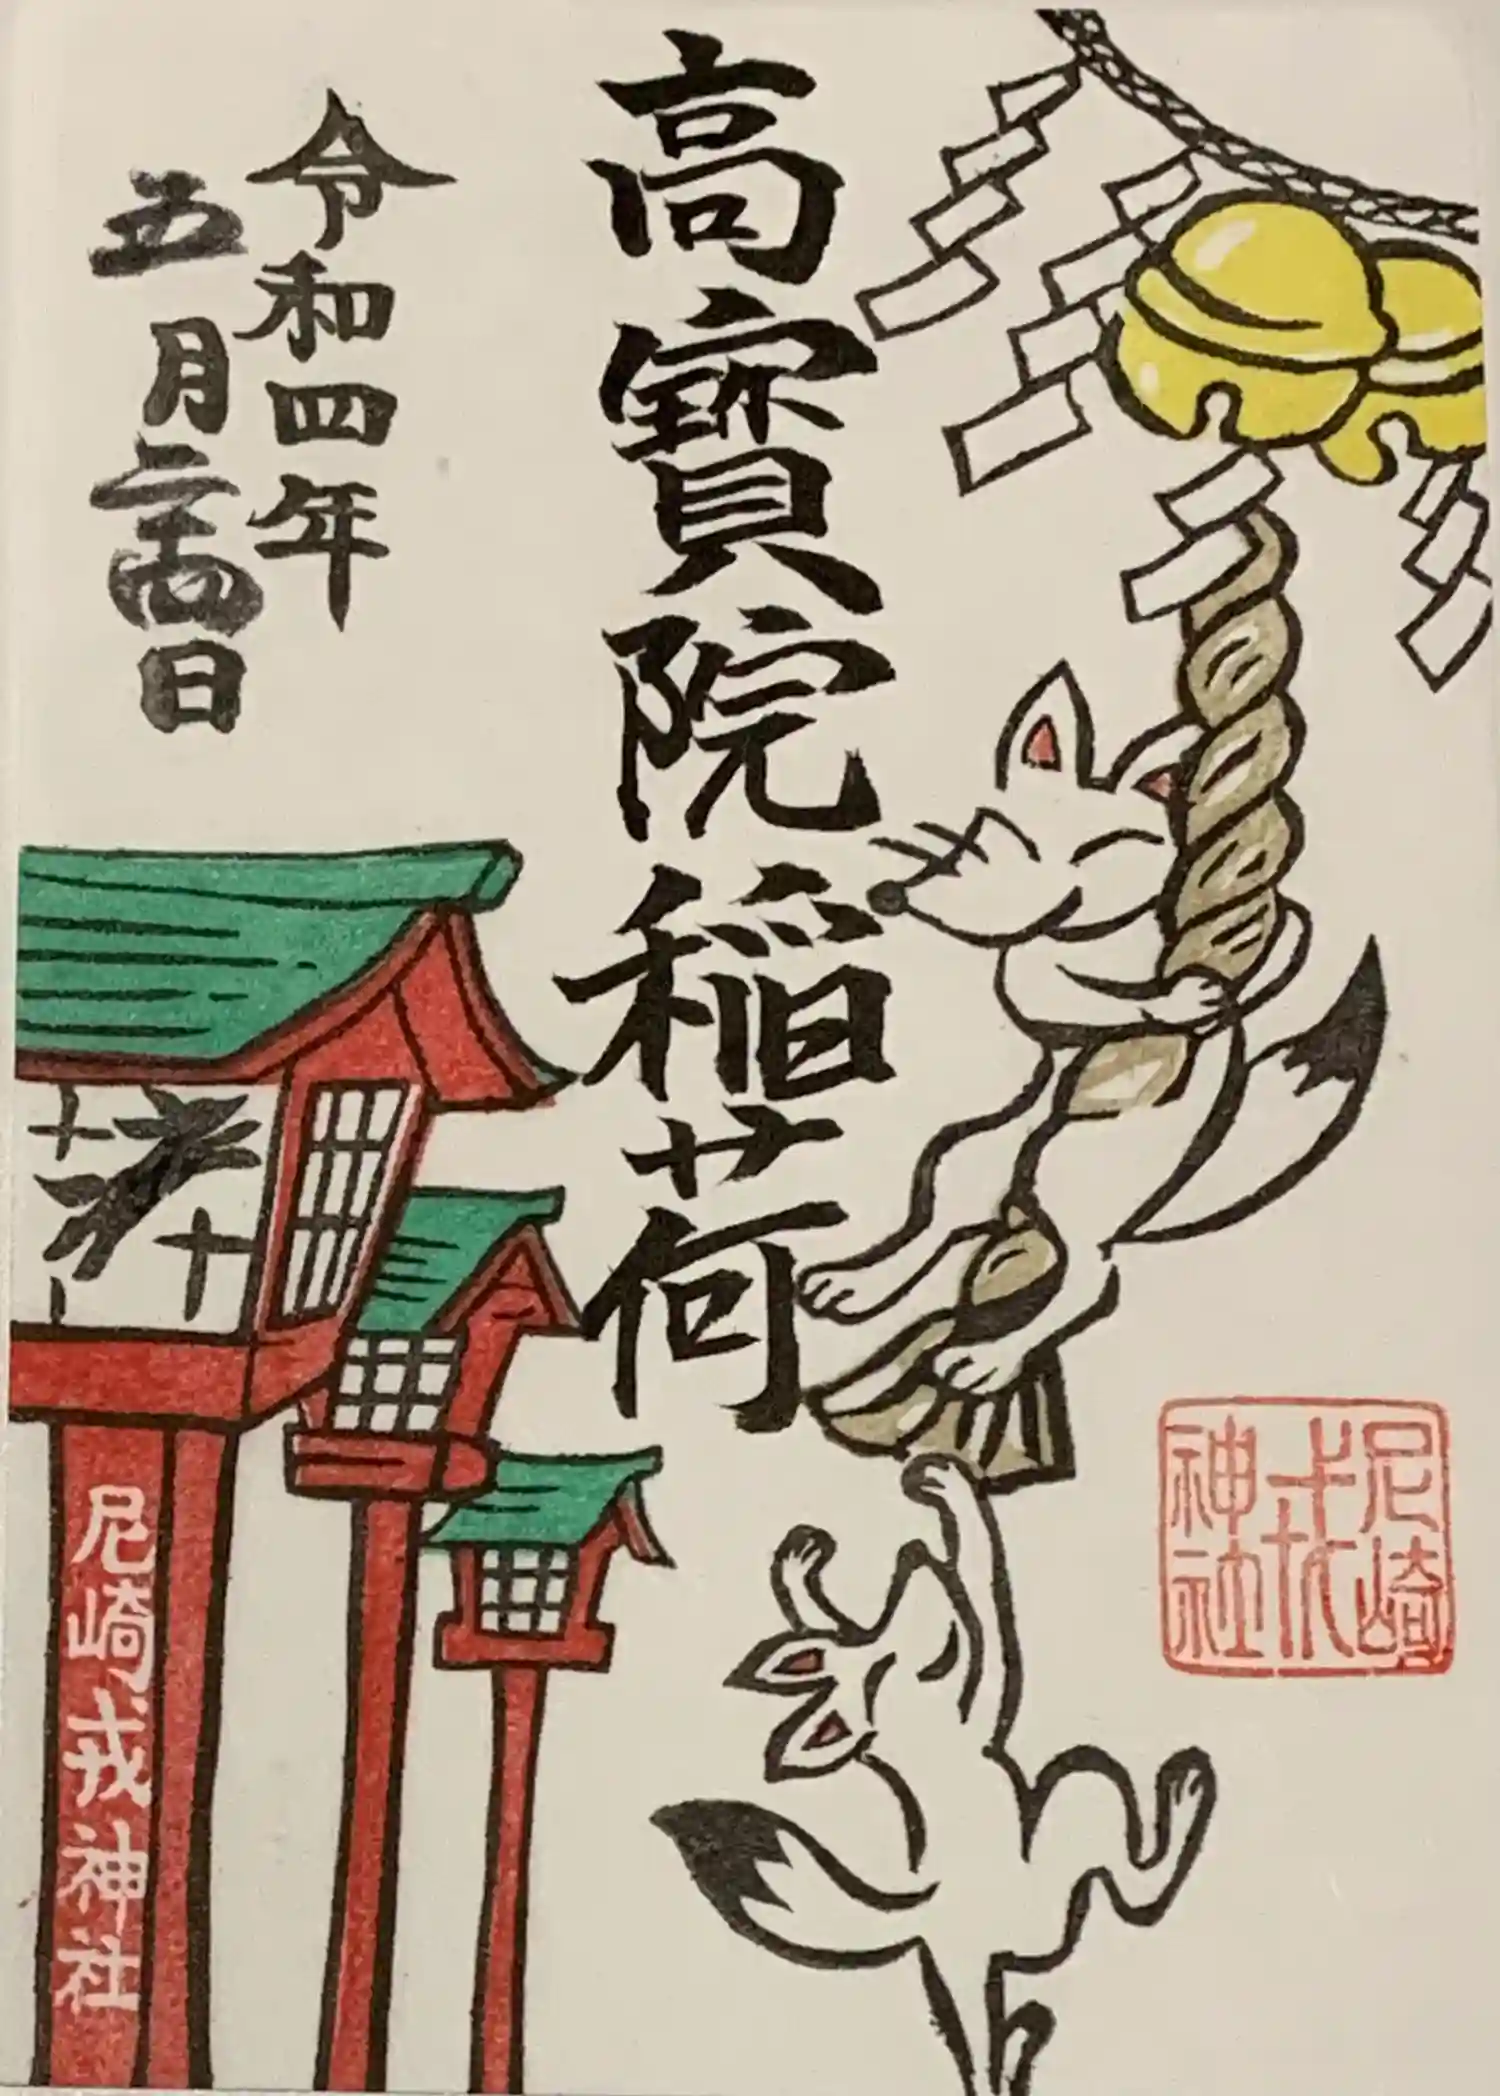 高寳院稲荷
令和四年
五月二十四日
奉
尼崎戎神社
尼崎
戎
神社